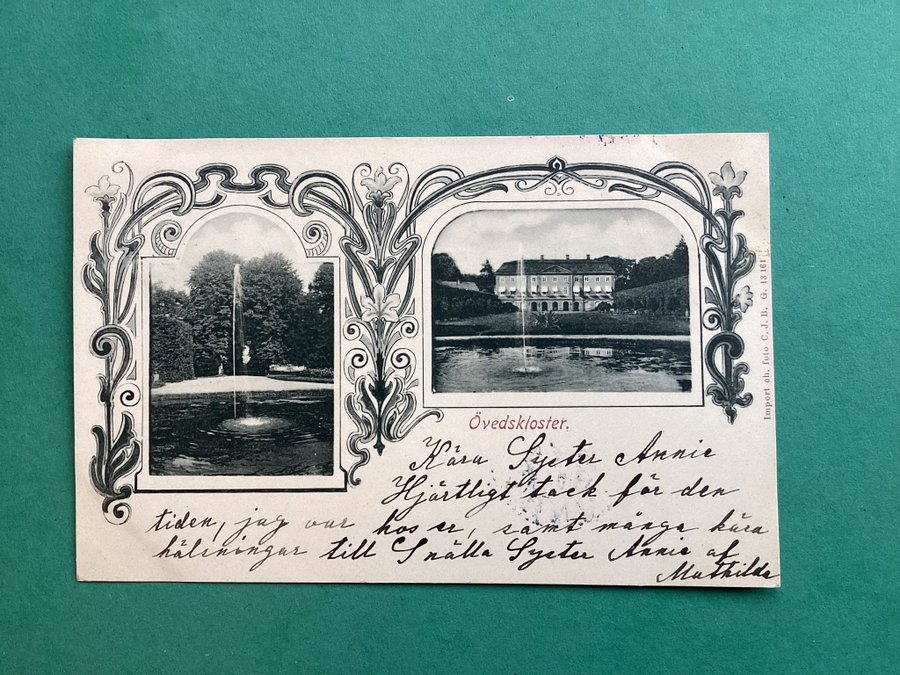 Övedskloster.
Kära Syster Annie
Hjärtligt tack för den
tiden, jag var hos er, samt många kära
hälsningar till Snälla Syster Annie af
Mathilda
Import och. foto C. J. B. G. 13 161